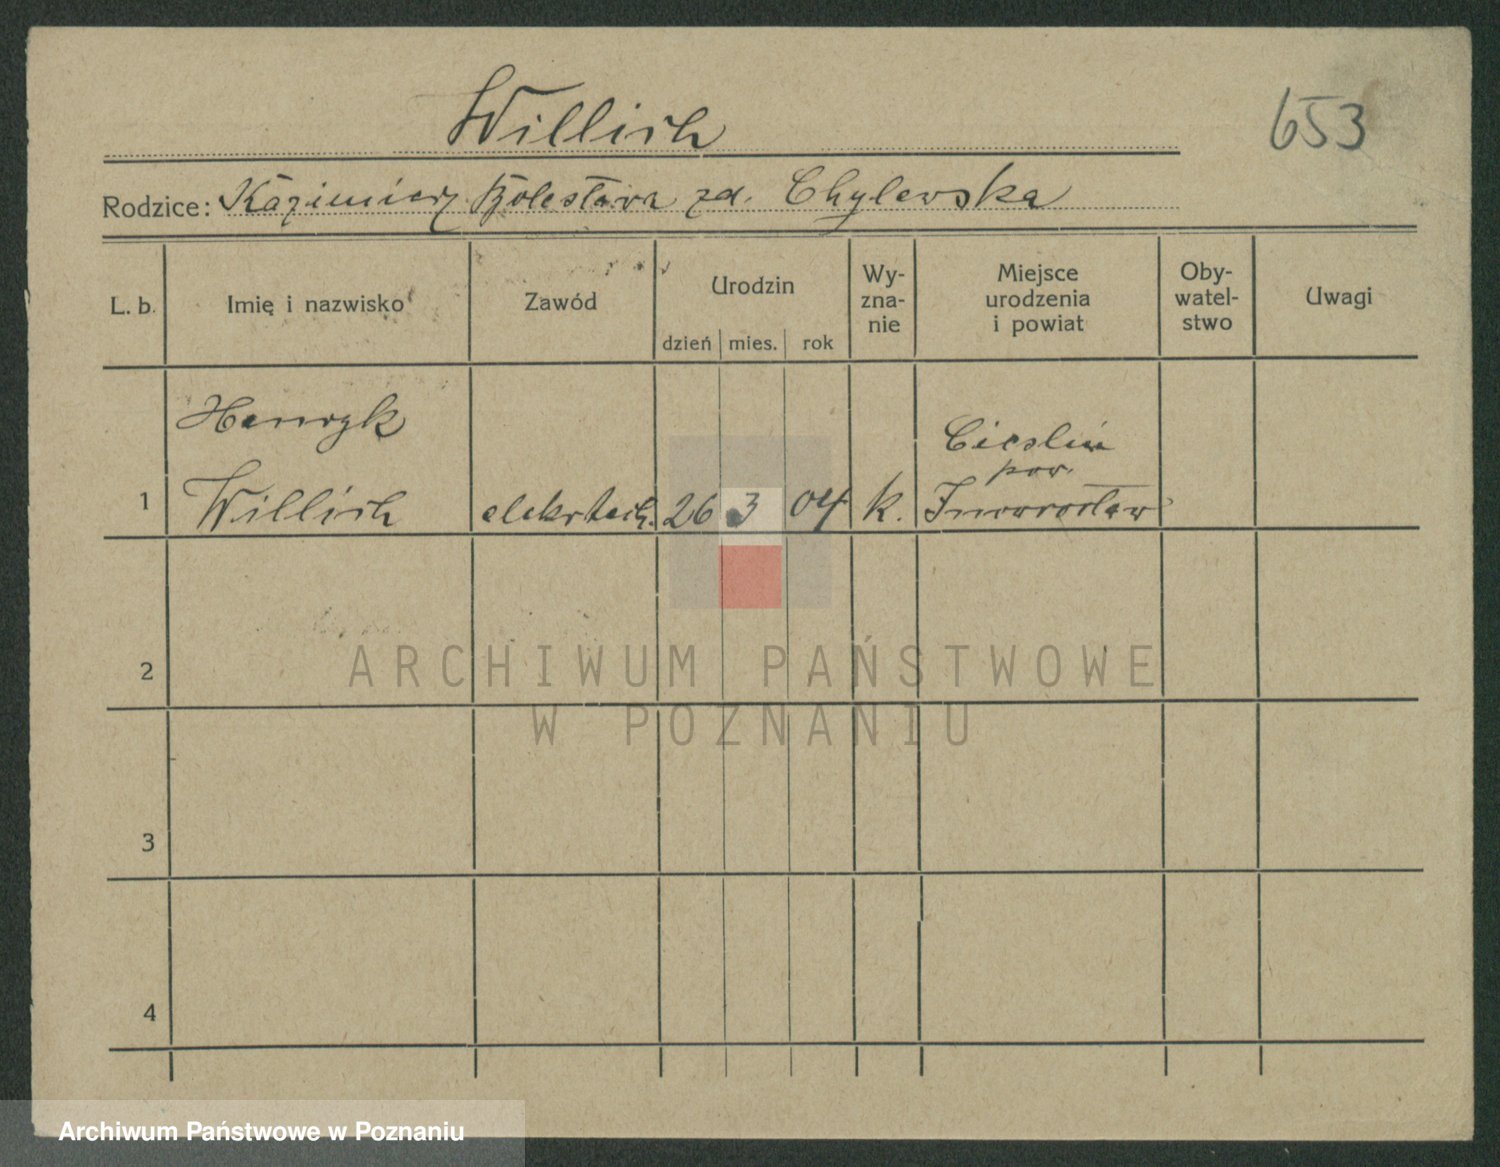 Willich
653
Rodzice: Kazimierz Bolesława zd. Chylewska
L. b.
Imię i nazwisko
Zawód
Urodzin
dzień
mies.
rok
Wy-
zna-
nie
Miejsce
urodzenia
i powiat
Oby-
watel-
stwo
Uwagi
1
Henryk
Willich
elektrtech.
26
3
04
k.
Cieślin
pow.
Inowrocław
2
3
4
ARCHIWUM PAŃSTWOWE
W POZNANIU
Archiwum Państwowe w Poznaniu